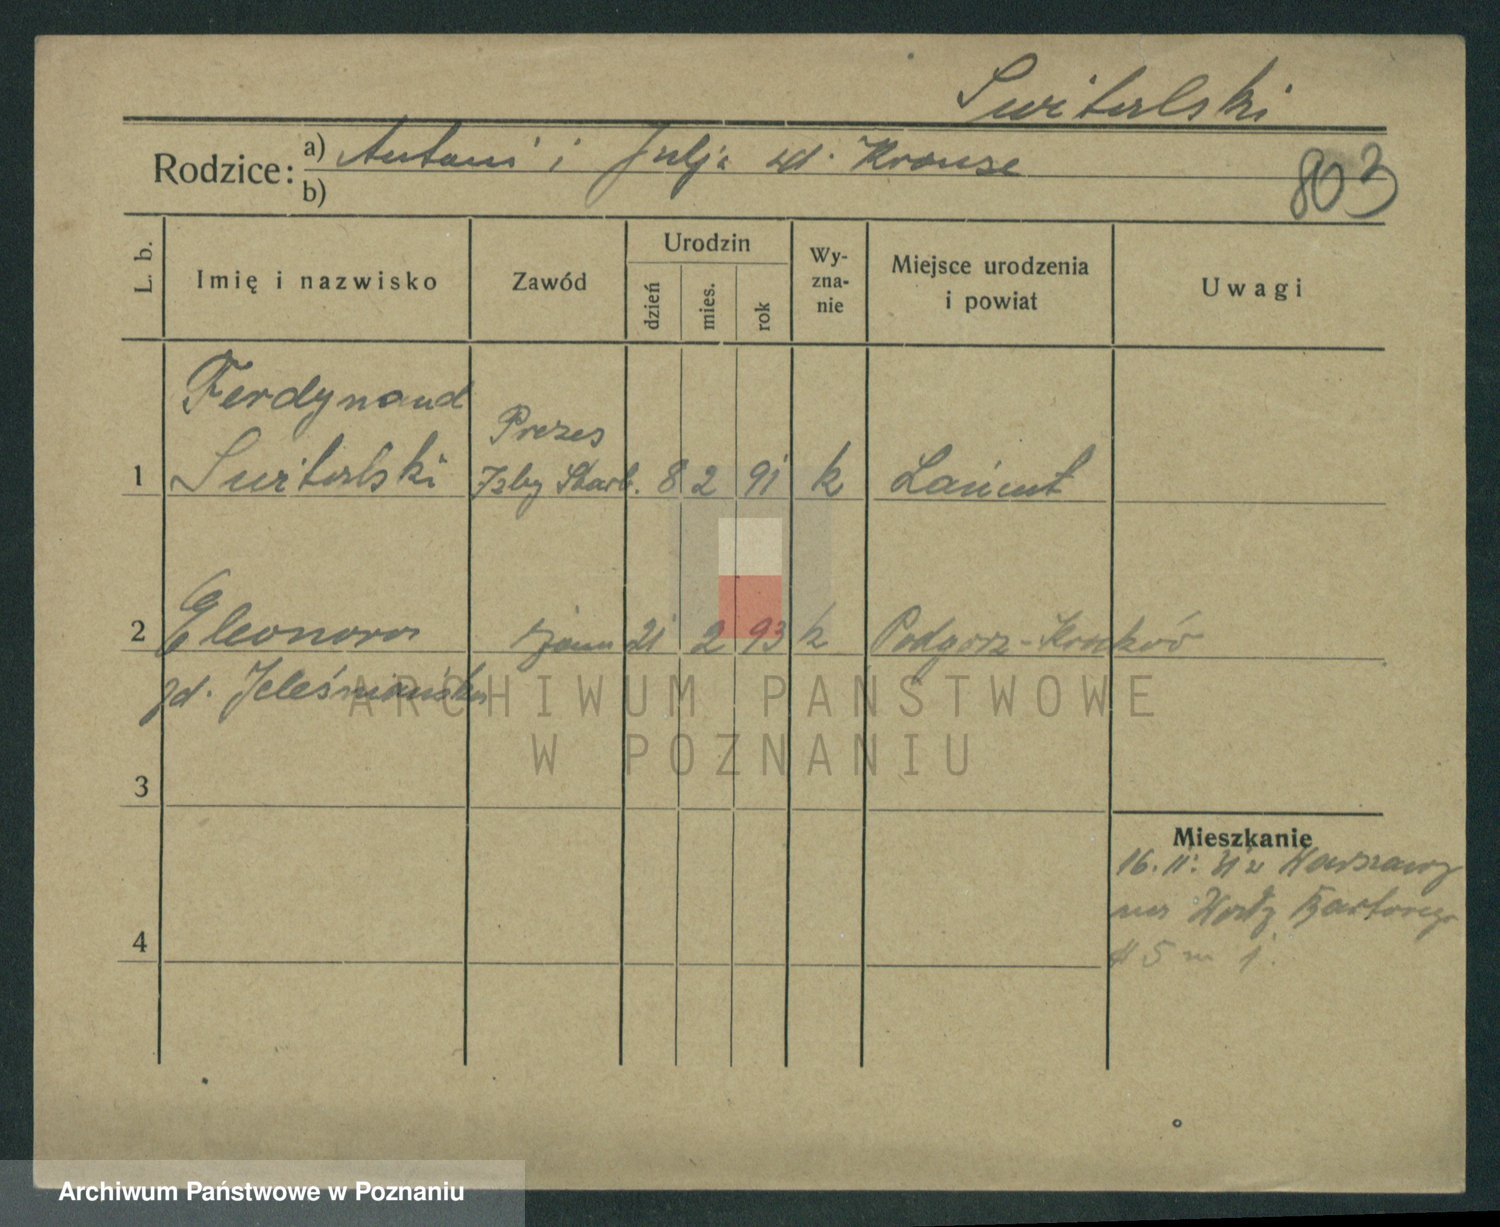 Świtalski
Rodzice: a) Antoni i Julja zd. Krause
b)
803
L. b.
Imię i nazwisko
Zawód
Urodzin
dzień
mies.
rok
Wy-
zna-
nie
Miejsce urodzenia
i powiat
Uwagi
Ferdynand
Prezes
1 Świtalski Izby Skarb. 8 2 91 k Łańcut
2 Eleonora żona 21 2 93 k Podgórz-Kraków
zd. Jeleśniańska
ARCHIWUM PAŃSTWOWE
W POZNANIU
3
Mieszkanie
16. 11. 31 z Warszawy
4
5 m 1.
Archiwum Państwowe w Poznaniu